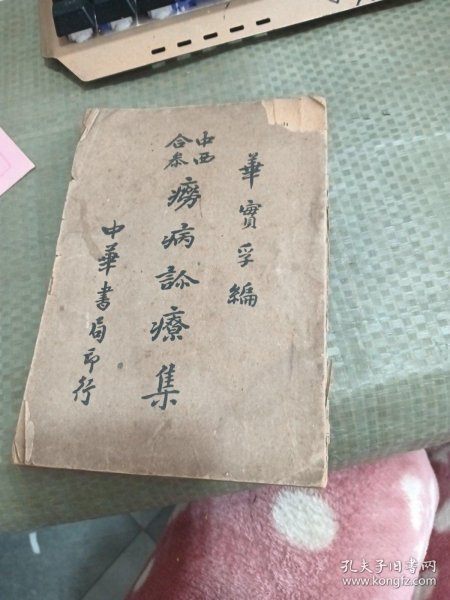 華實孚編
中西
合參
癆病診療集
中華書局印行
孔夫子旧书网
www.kongfz.com